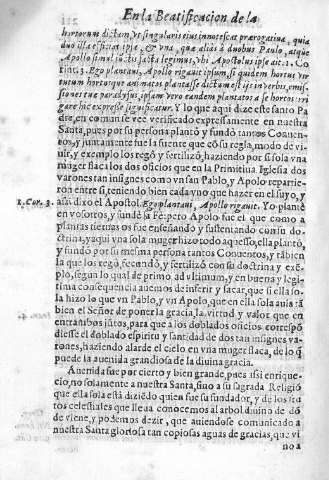 En la Beatificacion de la
hortorum dictam, ut singularis eius innotescat prærogatiua, quia
duo illa efficit ipse, & vna, quæ alias à duobus Paulo, atque
Apollo simul iuctis facta legimus, vbi Apostolus ipse ait. 1. Co
rint. 3. Ego plantaui, Apollo rigauit ipsum, si quidem hortus vir
tutum hortusque animæ plantasse dictum est
gare hic expresse significatur. Y lo que aqui dize este santo Pa
dre, en comun se vee verificado expresamente en nuestra
Santa, pues por su persona plantò y fundò tantos Conuen-
tos, y juntamente fue la fuente que cõ su regla, modo de vi-
uir, y exemplo los regò y fertilizò, haziendo por si sola vna
muger flaca los dos oficios que en la Primitiua Iglesia dos
varones tan insignes como vn san Pablo, y Apolo repartie-
ron entre si, teniendo bien cada vno que hazer en el suyo, y
1. Cor. 3. assi dixo el Apostol. Ego plantaui, Apollo rigauit. Yo plantè
en vosotros, y fundè la Fe, pero Apolo fue el que como a
plantas tiernas os fue enseñando y sustentando con su do-
ctrina, y aqui vna sola muger hizo todo aquesso, ella plantò,
y fundò por su mesma persona tantos Conuentos, y tãbien
la que los regò, fecundò, y fertilizò con su doctrina y exẽ-
plo, segun lo qual de primo, ad vltimum, y en buena y legi-
tima consequencia auemos de inferir y sacar, que si ella so-
la hizo lo que vn Pablo, y vn Apolo, que en ella sola auia tã
bien el Señor de poner la gracia, la virtud y valor que en
entrambos jũtos, para que a los doblados oficios correspõ
diesse el doblado espiritu y santidad de dos tan insignes va-
rones, haziendo alarde el cielo en vna muger flaca, de lo q̃
puede la auenida grandiosa de la diuina gracia.
Auenida fue por cierto y bien grande, pues assi enrique-
cio, no solamente a nuestra Santa, sino a su sagrada Religiõ
que ella sola està diziẽdo quien fue su fundador, y de los fru
tos celestiales que lleua conocemos al arbol diuino de dõ
de viene, y podemos dezir, que auiendose comunicado a
nuestra Santa gloriosa tan copiosas aguas de gracias, que vi
no a